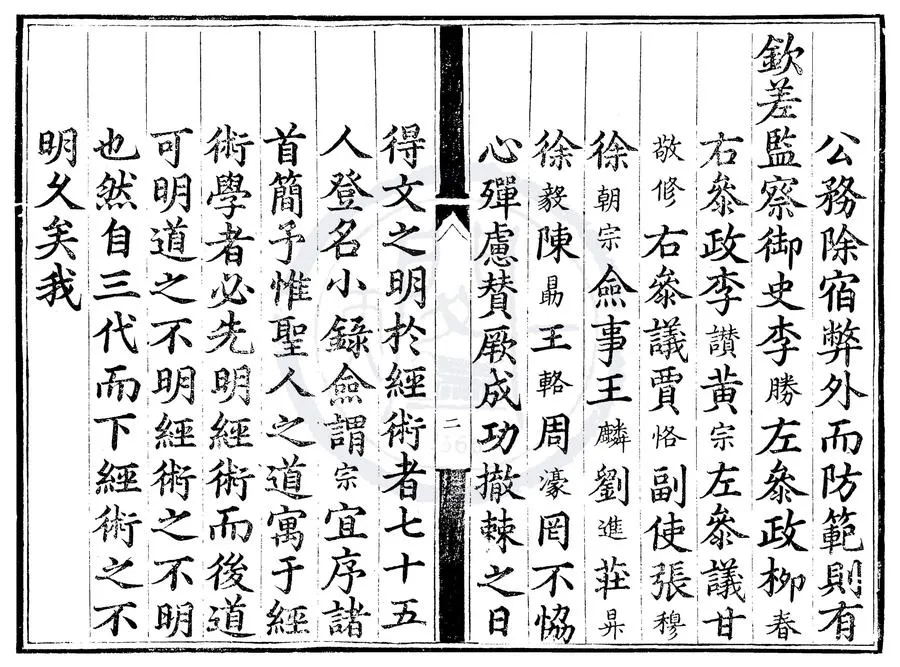 公務除宿弊外而防範則有
欽差監察御史李勝左叅政栁春
右叅政李讃黄宗左叅議甘
敬修右叅議賈恪副使張穆
徐朝宗僉事王麟劉進莊昇
徐毅陳勗王輅周濠罔不恊
心殫慮賛厥成功撤棘之日
二
得文之明於經術者七十五
人登名小錄僉謂宗宜序諸
首簡予惟聖人之道寓于經
術學者必先明經術而後道
可明道之不明經術之不明
也然自三代而下經術之不
明久矣我